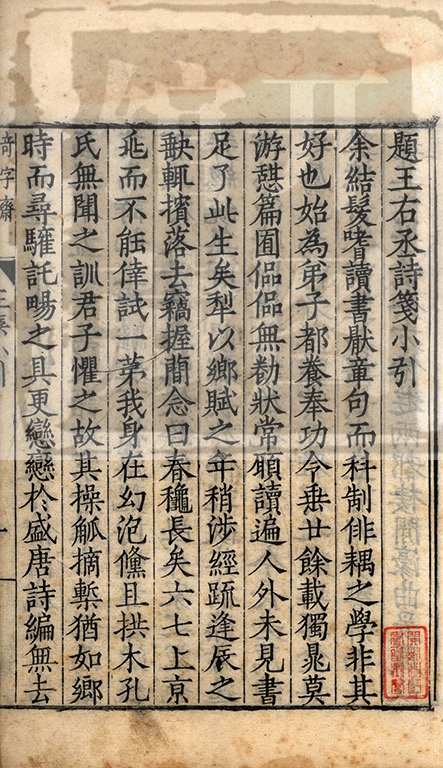 題王右丞詩箋小引
余結髮嗜讀書猒章句而科制俳耦之學非其
好也始為弟子都養奉功令垂廿餘載獨晁莫
游憇篇囿偘偘無勌狀常願讀遍人外未見書
足了此生矣犁以鄉賦之年稍涉經疏逢辰之
缺輒擯落去竊握蕳念曰春穐長矣六七上京
兆而不能倖試一苐我身在幻泡儵且拱木孔
氏無聞之訓君子懼之故其操觚摘槧猶如鄉
時而尋驩託暢之具更戀戀於盛唐詩編無去
奇字齋